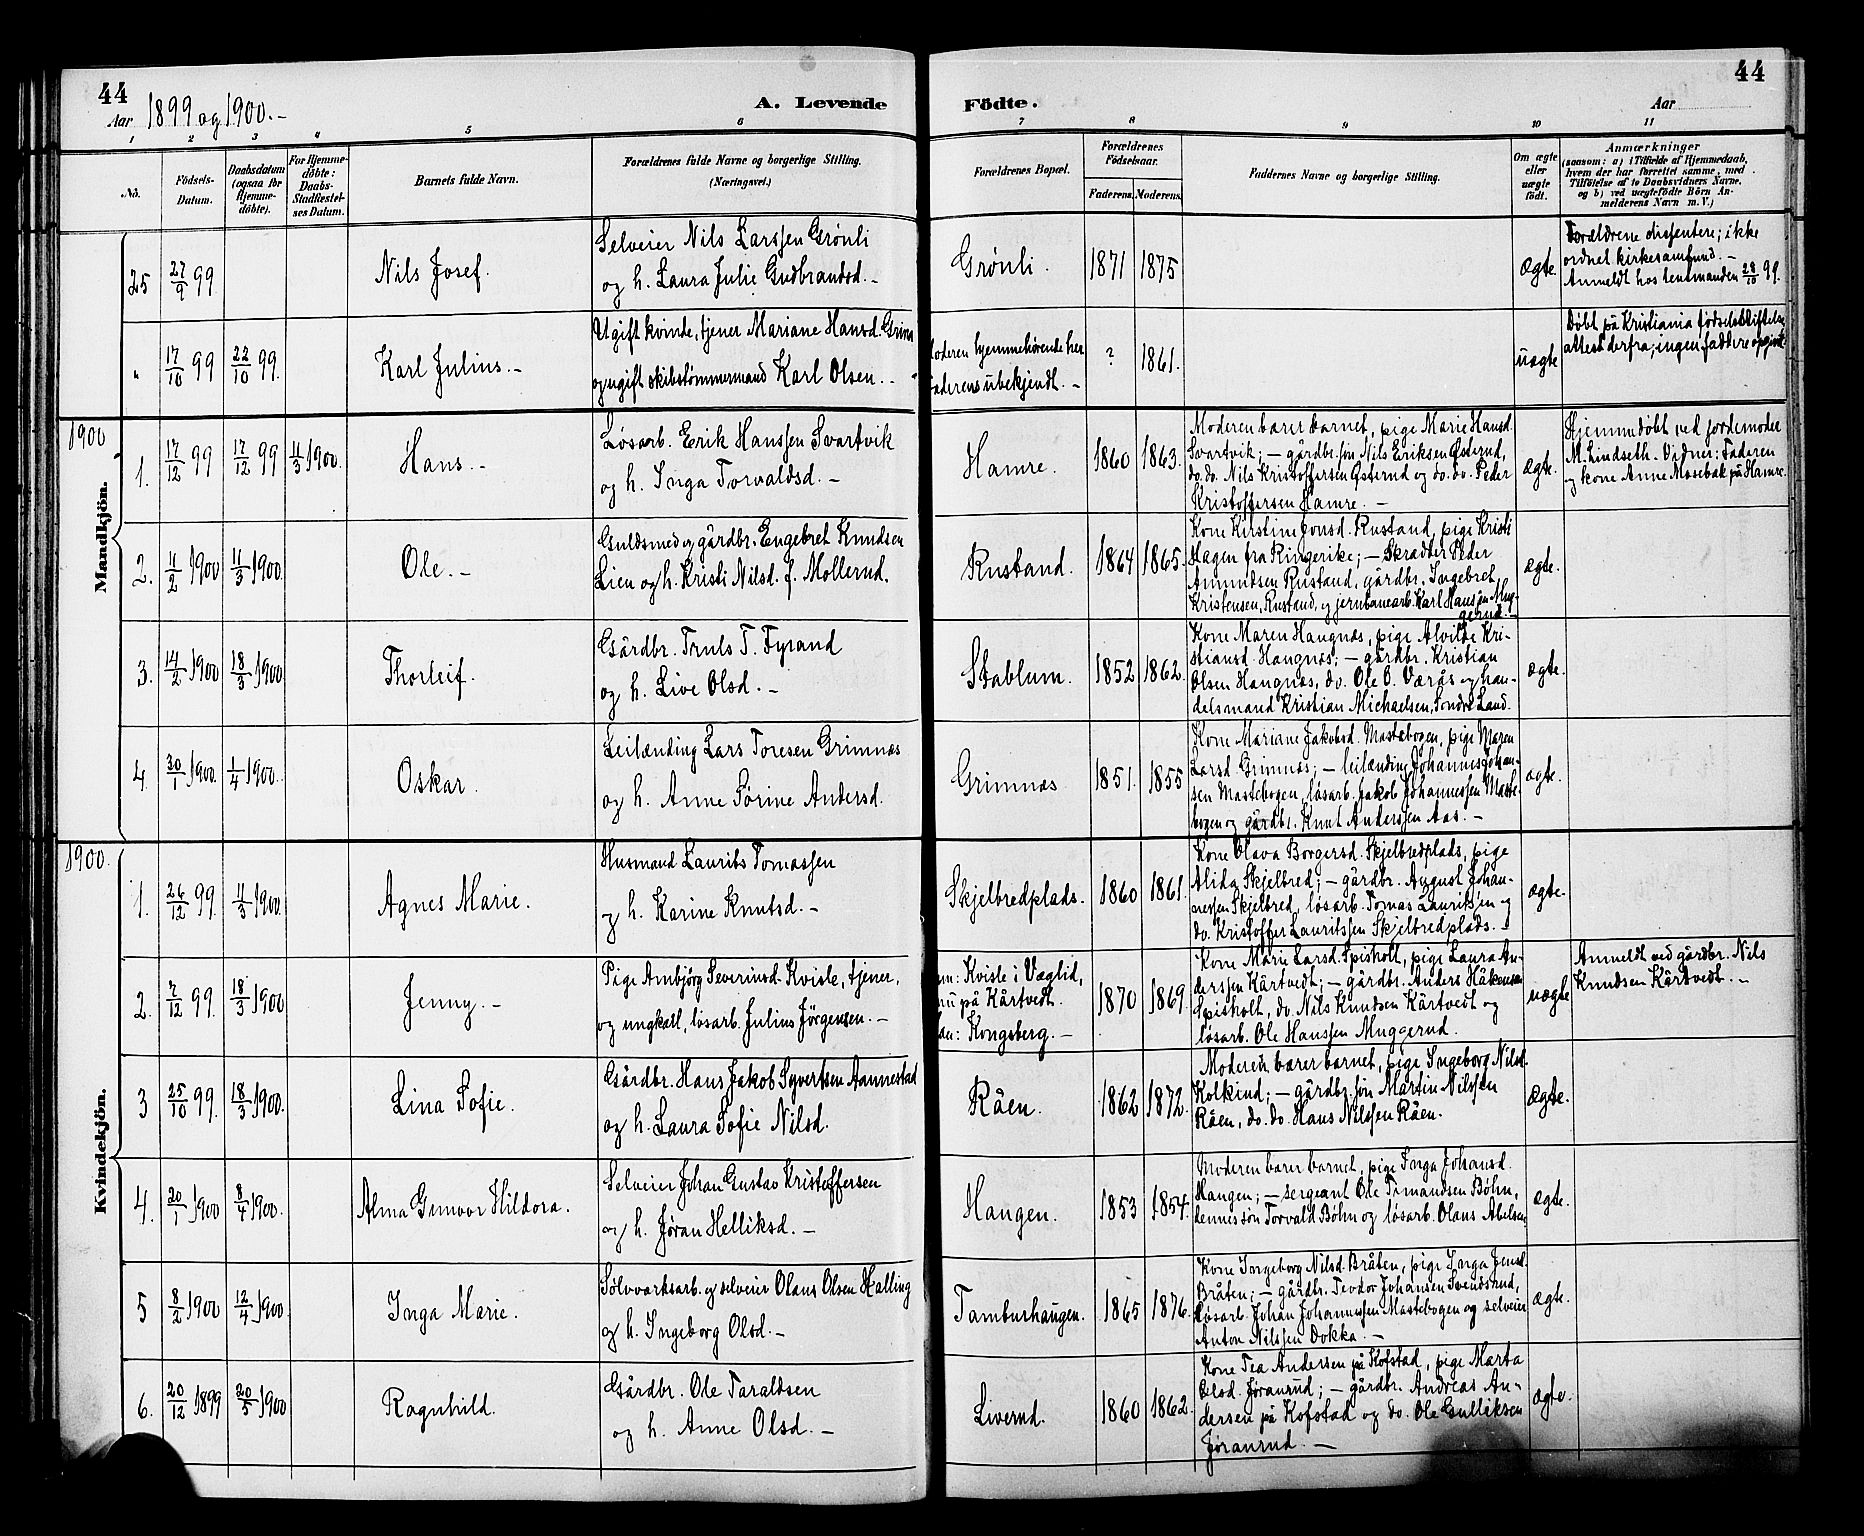 44
44
Aar 1899 og 1900.-
A. Levende
Fødte.
Aar
1 2 3 4 5 6 7 8 9 10 11
No.
Fødsels-
Datum.
Daabsdatum
(ogsaa for
Hjemme-
døbte).
For Hjemme-
døbte:
Daabs-
Stadfæstel-
ses Datum.
Barnets fulde Navn.
Forældrenes fulde Navne og borgerlige Stilling.
(Næringsvei.)
Forældrenes Bopæl.
Forældrenes
Fødselsaar.
Faderens. Moderens.
Faddernes Navne og borgerlige Stilling.
Om ægte
eller
uægte
født.
Anmærkninger
(saasom: a) i Tilfælde af Hjemmedaab,
hvem der har forrettet samme, med
Tilføielse af to Daabsvidners Navne,
og b) ved uægtefødte Børn An-
melderens Navn m. V.)
25 27/9 99 Nils Josef.
Selveier Nils Larssen Grønli
og h. Laura Julie Gudbrandsd.-
Grønli. 1871 1875
ægte.
Forældrene dissentere; ikke
ordnet kirkesamfund.-
Anmeldt hos lensmanden 28/10 99.
" 17/10 99 22/10 99. Karl Julius.-
Ugift kvinde, tjener Mariane Hansd.
og ugift skibstømmermand Karl Olsen.-
Moderen hjemmehørende her
Faderens ubekjendt.-
? 1861.
uægte
Døbt på Kristiania fødselsstiftelse
attest derfra; ingen faddere opgivet
1900
Mandkjøn.
1. 17/12 99 17/12 99 11/3 1900. Hans.-
Løsarb. Erik Hanssen Svartvik
og h. Inga Torvaldsd.-
Hamre. 1860 1863.
Moderen bærer barnet, pige Marie Hansd.
Svartvik; - gårdbr. søn Nils Eriksen Østerud,
do. do. Nils Kristoffersen Østerud og do. do. Peder
Kristoffersen Hamre.-
ægte.
Hjemmedøbt ved jordemoder
M. Lindseth. Vidner: Faderen
og kone Anne Mosebak på Hamre.
2. 11/2 1900 11/3 1900. Ole.-
Guldsmed og gårdbr. Engebret Knudsen
Lien og h. Kristi Nilsd. f. Mollerud.
Rustand. 1864 1865.
Kone Kirstine Jonsd. Rustand, pige Kristi
Hagen fra Ringerike; - Skrædder Peder
Amundsen Rustand, gårdbr. Ingebret
Kristensen, Rustand, og jernbanearb. Karl Hanssen Mug-
gerud.-
ægte.
3. 14/2 1900 18/3 1900. Thorleif.
Gårdbr. Truls T. Fyrand
og h. Live Olsd.-
Stablum. 1852 1862.
Kone Maren Haugnæs, pige Alvilde Kri-
stiansd. Haugnæs; - gårdbr. Kristian
Olsen Haugnæs, do. Ole O. Værås og han-
delsmand Kristian Michaelsen, Søndre Land.
ægte.
4. 30/1 1900. 1/4 1900. Oskar.
Leilænding Lars Toresen Grimnæs
og h. Anne Sørine Andersd.
Grimnæs 1851. 1855
Kone Mariane Jakobsd. Mastebogen, pige Maren
Larsd. Grimnæs; - leilænding Johannes Johan-
sen Mastebogen, løsarb. Jakob Johannessen Maste-
bogen og gårdbr. Knut Anderssen Aas.-
ægte.
1900.
Kvindekjøn.
1. 26/12 99. 11/3 1900. Agnes Marie.
Husmand Laurits Tomassen
og h. Karine Knutsd.-
Skjelbredplads. 1860 1861.
Kone Olava Borgersd. Skjelbredplads, pige
Alida Skjelbred; - gårdbr. August Johan-
nessen Skjelbred, løsarb. Tomas Lauritsen og
do. Kristoffer Lauritssen Skjelbredplads.-
ægte.
2. 7/12 99. 18/3 1900 Jenny.-
Pige Ambjørg Severinsd. Kvisle, tjener,
og ungkarl, løsarb. Julius Jørgensen.-
Kvisle i Væglid,
nu på Kårtvedt.
Kongsberg.-
1870 1869.
Kone Marie Larsd. Spisholt, pige Laura An-
derssen Kårtvedt; - gårdbr. Anders Håkensen
Spisholt, do. Nils Knudsen Kårtvedt og
løsarb. Ole Hanssen Muggerud.
uægte
Anmeldt ved gårdbr. Nils
Knudsen Kårtvedt.-
3 25/10 99. 18/3 1900. Lina Sofie.
Gårdbr. Hans Jakob Syvertsen Aannestad
og h. Laura Sofie Nilsd.
Råen. 1862 1872.
Moderen bærer barnet, pige Ingeborg Nilsd.
Kolkind; - gårdbr. søn Martin Nilssen
Råen, do. do. Hans Nilssen Råen.
Ægte.
4. 20/1 1900 8/4 1900. Alma Gunvor Hildora.
Selveier Johan Gustav Kristoffersen
og h. Jøran Helliksd.-
Haugen. 1853 1854.
Moderen bærer barnet, pige Inga Johansd.
Haugen; - sergeant Ole Tomandsen Bøhn,
dennes søn Torvald Bøhn og løsarb. Olaus Abelsen
ægte.
5 8/2 1900 12/4 1900. Inga Marie.
Sølvværksarb. og selveier Olaus Olsen Halling
og h. Ingeborg Olsd.-
Tamburhaugen. 1865 1876.
Kone Ingeborg Nilsd. Bråten, pige Inga Jensd.
Bråten; - gårdbr. Teodor Johansen Svendsrud,
Løsarb. Johan Johannessen Mastebogen og selveier
Anton Nilssen Dokka.-
ægte.
6. 20/12 1899 20/5 1900 Ragnhild.
Gårdbr. Ole Taraldsen
og h. Anne Olsd.-
Liverud. 1860 1862.
Kone Tea Andersen på Kofstad, pige Marta
Olsd. Jøranrud; - gårdbr. Andreas An-
dersen på Kofstad og do. Ole Gulliksen
Jøranrud.-
ægte.